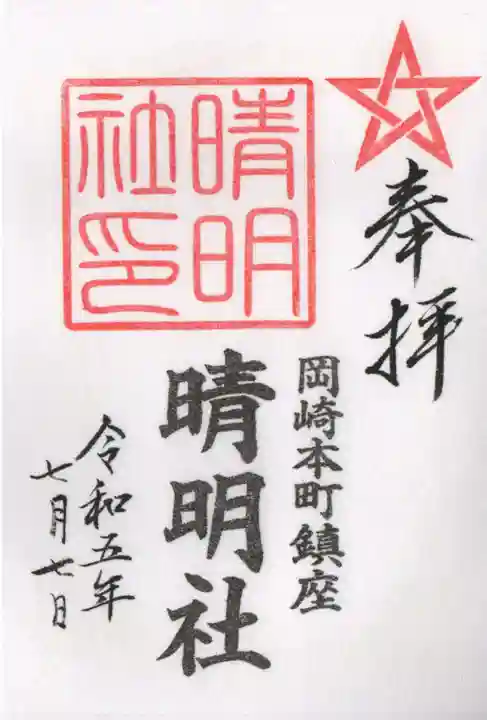 奉拝
岡崎本町鎮座
晴明社
晴明
社印
令和五年
七月七日